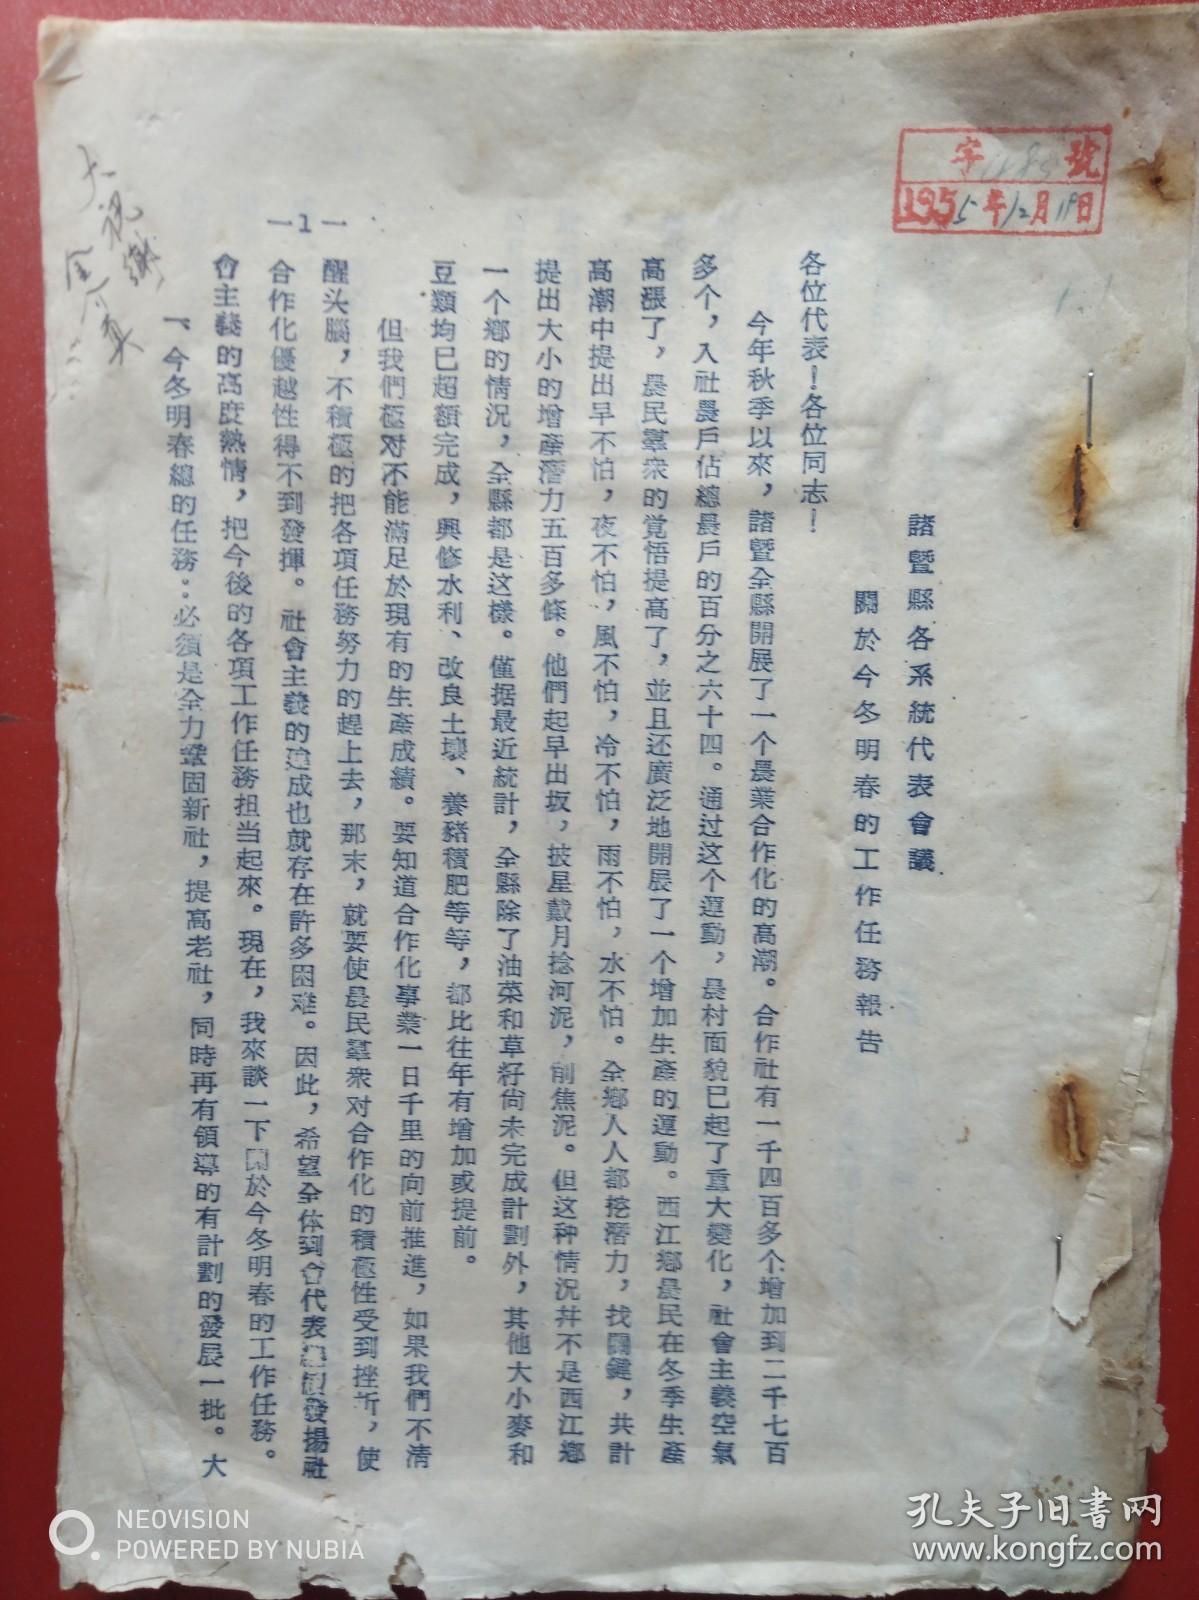 字 號
1955年12月19日
諸暨縣各系統代表會議
關於今冬明春的工作任務報告
各位代表！各位同志！
今年秋季以來，諸暨全縣開展了一个農業合作化的高潮。合作社有一千四百多个增加到二千七百
多个，入社農戶佔總農戶的百分之六十四。通过这个運動，農村面貌已起了重大變化，社會主義空氣
高漲了，農民羣衆的覚悟提高了，並且还廣泛地開展了一个增加生產的運動。西江鄉農民在冬季生產
高潮中提出早不怕，夜不怕，風不怕，冷不怕，雨不怕，水不怕。全鄉人人都挖潛力，找關鍵，共計
提出大小的增產潛力五百多條。他們起早出坂，披星戴月捻河泥，削焦泥。但这种情況并不是西江鄉
一个鄉的情況，全縣都是这樣。僅据最近統計，全縣除了油菜和草籽尙未完成計劃外，其他大小麥和
豆類均已超額完成，興修水利、改良土壤、養豬積肥等等，都比往年有增加或提前。
但我們極对不能滿足於現有的生產成績。要知道合作化事業一日千里的向前推進，如果我們不清
醒头腦，不積極的把各項任務努力的趕上去，那末，就要使農民羣衆对合作化的積極性受到挫折，使
合作化優越性得不到發揮。社會主義的建成也就存在許多困难。因此，希望全体到會代表 發揚社
會主義的高度熱情，把今後的各項工作任務担当起來。現在，我來談一下關於今冬明春的工作任務。
一、今冬明春總的任務：必須是全力鞏固新社，提高老社，同時再有領導的有計劃的發展一批。大
—1—
NEOVISION
POWERED BY NUBIA
孔夫子旧書网
www.kongfz.com